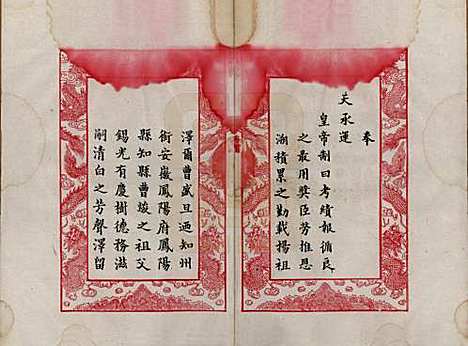 奉
天承運
皇帝制曰考績報循良
之最用奬臣勞推恩
溯積累之勤載揚祖
澤爾曹盛旦迺知州
銜安徽鳳陽府鳳陽
縣知縣曹竣之祖父
錫光有慶樹德務滋
嗣清白之芳聲澤留